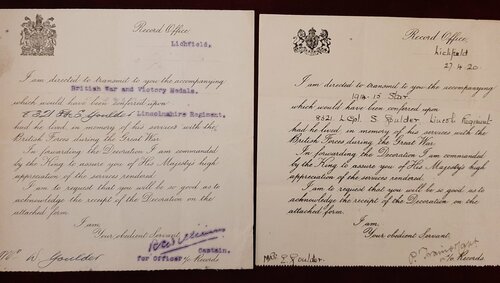 Record Office,
Lichfield,
I am directed to transmit to you the accompanying
British War and Victory Medals.
which would have been conferred upon
Goulder, Lincolnshire Regiment,
had he lived in memory of his services with the
British Forces during the Great War.
In forwarding the Decoration I am commanded
by the King to assure you of His Majesty's high
appreciation of the services rendered.
I am to request that you will be so good as to
acknowledge the receipt of the Decoration on the
attached form.
I am,
Your obedient Servant,
Captain.
for Officer i/c Records
Goulder
Record Office,
Lichfield
27.4.20
I am directed to transmit to you the accompanying
1914-15 Star
which would have been conferred upon
8321 L/Cpl. S. Goulder. Lincoln Regiment
had he lived in memory of his services with the
British Forces during the Great War.
In forwarding the Decoration I am commanded
by the King to assure you of His Majesty's high
appreciation of the services rendered.
I am to request that you will be so good as to
acknowledge the receipt of the Decoration on the
attached form.
I am,
Your obedient Servant,
i/c Records
E. Goulder.